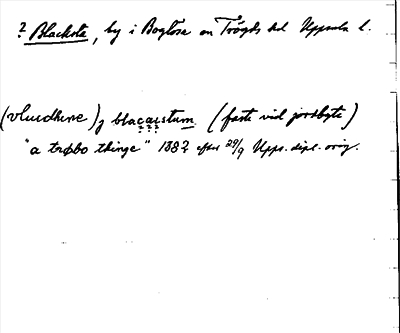 ? Blacksta, by i Boglösa sn Trögds hd Uppsala l.
i blacaxstum (faste vid jordbyte)
"a trøbo thinge" 1382 efter 29/9 Upps. dipl. orig.